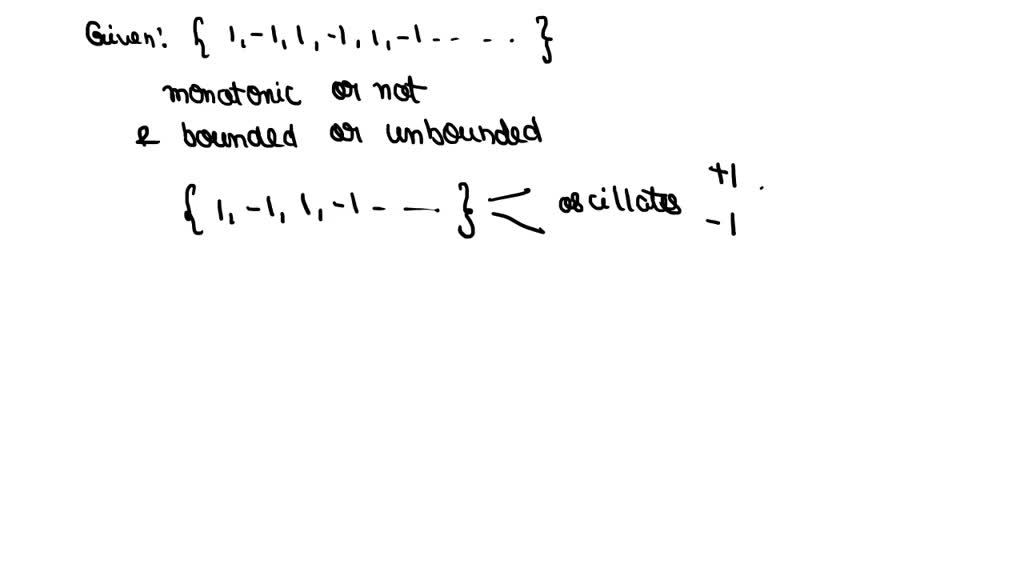 Given: { 1, -1, 1, -1, 1, -1 -- -- . }
monotonic or not
& bounded or unbounded
{ 1, -1, 1, -1 - — } < oscillates +1 -1